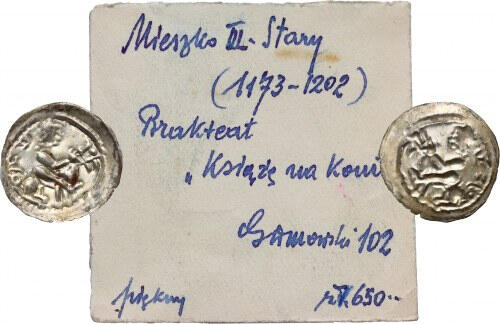 Mieszko III - Stary
(1173-1202)
Brakteat
„Książę na koniu
Gumowski 102
piękny
zł 650--